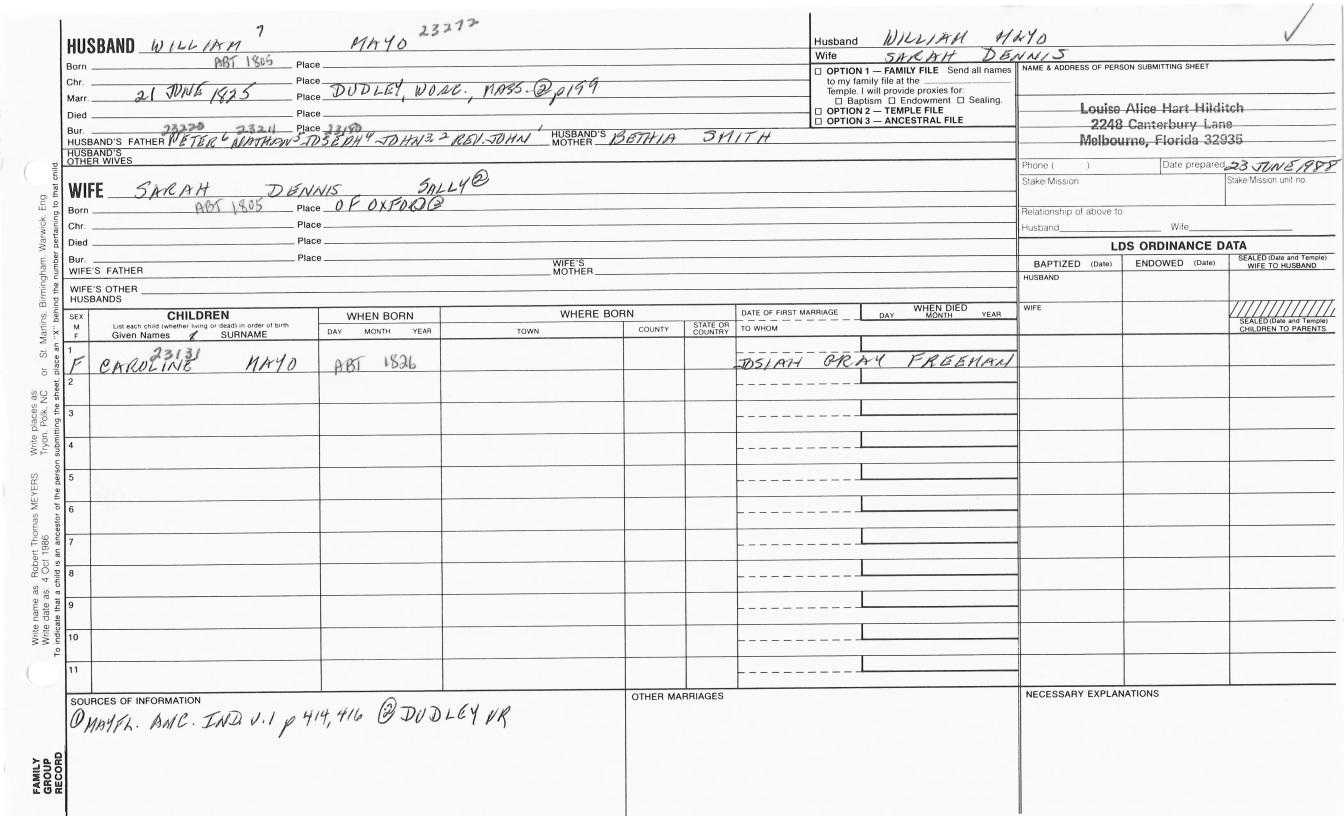 HUSBAND WILLIAM 7 MAYO 23272
Born ABT 1805 Place
Chr. Place
Marr. 21 JUNE 1825 Place DUDLEY, WORC., MASS. ② p199
Died Place
Bur. Place
23220 23211 23180
HUSBAND'S FATHER PETER 6 NATHAN 5 JOSEPH 4 JOHN 3, 2 REV. JOHN 1 HUSBAND'S MOTHER BETHIA SMITH
HUSBAND'S OTHER WIVES
WIFE SARAH DENNIS SALLY ②
Born ABT 1805 Place OF OXFORD ②
Chr. Place
Died Place
Bur. Place
WIFE'S FATHER WIFE'S MOTHER
WIFE'S OTHER HUSBANDS
Husband WILLIAM MAYO
Wife SARAH DENNIS
☐ OPTION 1 — FAMILY FILE Send all names
to my family file at the
Temple. I will provide proxies for:
☐ Baptism ☐ Endowment ☐ Sealing.
☐ OPTION 2 — TEMPLE FILE
☐ OPTION 3 — ANCESTRAL FILE
NAME & ADDRESS OF PERSON SUBMITTING SHEET
Louise Alice Hart Hilditch
2248 Canterbury Lane
Melbourne, Florida 32935
Phone ( ) Date prepared 23 JUNE 1988
Stake Mission Stake Mission unit no.
Relationship of above to
Husband Wife
LDS ORDINANCE DATA
BAPTIZED (Date) ENDOWED (Date) SEALED (Date and Temple) WIFE TO HUSBAND
HUSBAND
WIFE
SEALED (Date and Temple) CHILDREN TO PARENTS
SEX M F
CHILDREN
List each child (whether living or dead) in order of birth
Given Names SURNAME
WHEN BORN
DAY MONTH YEAR
WHERE BORN
TOWN COUNTY STATE OR COUNTRY
DATE OF FIRST MARRIAGE
TO WHOM
WHEN DIED
DAY MONTH YEAR
1
23131
F CAROLINE MAYO ABT 1826 JOSIAH GRAY FREEMAN
2
3
4
5
6
7
8
9
10
11
SOURCES OF INFORMATION
① MAYFL. ANC. IND. V.1 p 414, 416 ② DUDLEY VR
OTHER MARRIAGES
NECESSARY EXPLANATIONS
Write name as: Robert Thomas MEYERS Write places as: Tryon, Polk, NC or St. Martins, Birmingham, Warwick, Eng
Write date as: 4 Oct 1986
To indicate that a child is an ancestor of the person submitting the sheet, place an "X" behind the number pertaining to that child.
FAMILY
GROUP
RECORD